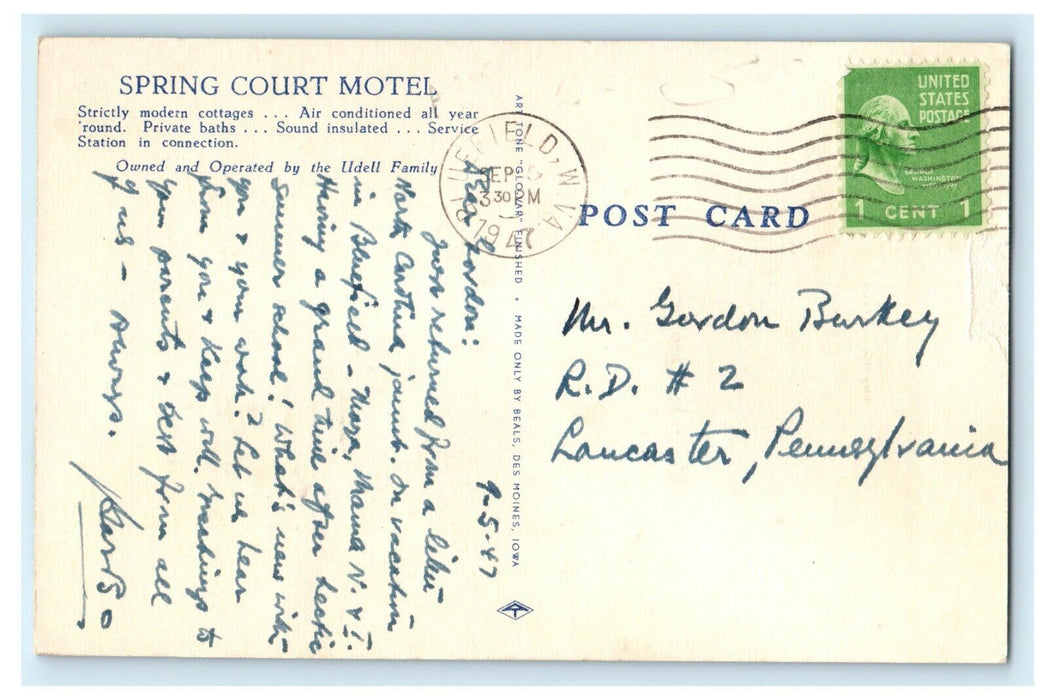 SPRING COURT MOTEL
Strictly modern cottages . . . Air conditioned all year
'round. Private baths . . . Sound insulated . . . Service
Station in connection.
Owned and Operated by the Udell Family
9-5-47
Dear Gordon:
Just returned from a
North Carolina jaunt. On vacation
in Bluefield - Mama N. & I.
Having a grand time after hectic
summer school! What's new with
you & your work? Let us hear
from you & keep well. Greetings to
your parents & best from all
of us - Always.
ARTTONE "GLO-VAR" FINISHED • MADE ONLY BY BEALS, DES MOINES, IOWA
BLUEFIELD, W. VA.
SEP 5
3 30 PM
1947
POST CARD
UNITED
STATES
POSTAGE
GEORGE
WASHINGTON
1 CENT 1
Mr. Gordon Burkey
R.D. # 2
Lancaster, Pennsylvania